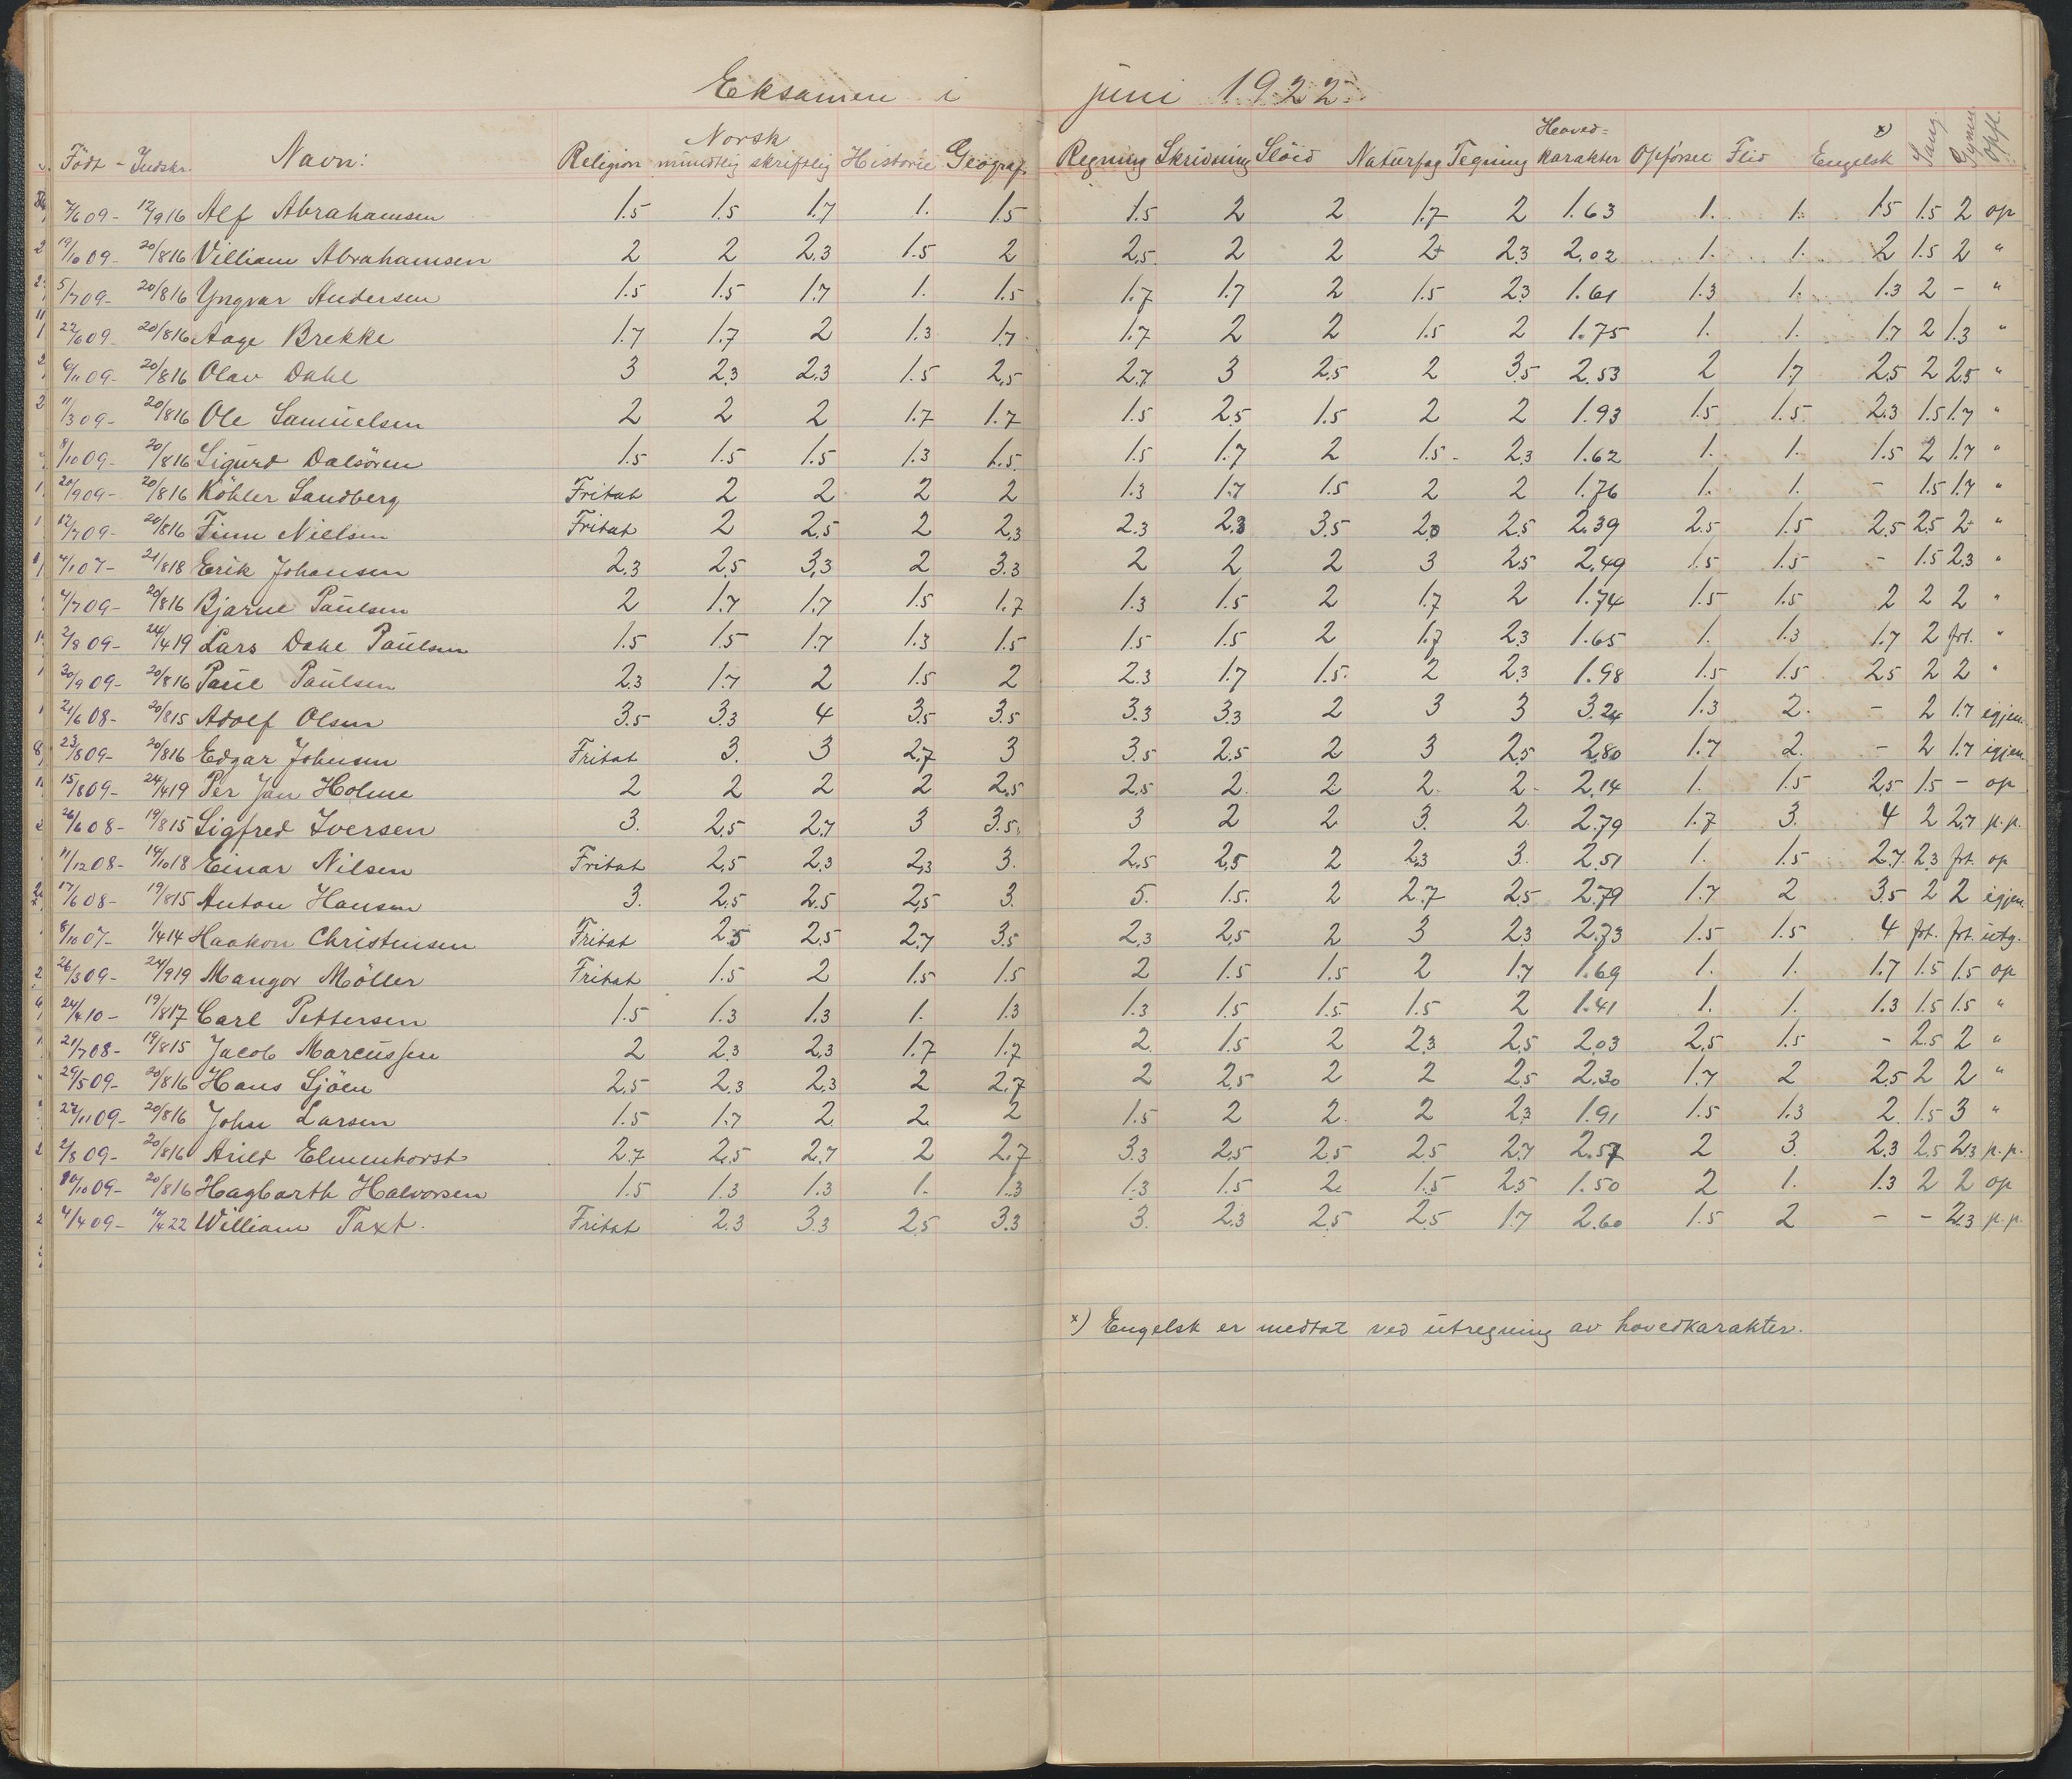 Eksamen i juni 1922
Födt - Indskr. Navn: Religion Norsk mündtlig skriftlig Historie Geograf. Regning Skrivning Slöid Naturfag Tegning Hoved= karakter Opförsel Flid Engelsk x) Sang. Gymn. Opfl.
7/6 09 - 12/9 16 Alf Abrahamsen 1.5 1.5 1.7 1. 1.5 1.5 2 2 1.7 2 1.63 1. 1. 1.5 1.5 2 op
19/10 09 - 20/8 16 Villiam Abrahamsen 2 2 2.3 1.5 2 2.5 2 2 2 2.3 2.02 1. 1. 2 1.5 2 "
5/7 09 - 20/8 16 Yngvar Andersen 1.5 1.5 1.7 1. 1.5 1.7 1.7 2 1.5 2.3 1.61 1.3 1. 1.3 2 - "
22/6 09 - 20/8 16 Aage Brekke 1.7 1.7 2 1.3 1.7 1.7 2 2 1.5 2 1.75 1. 1. 1.7 2 1.3 "
6/11 09 - 20/8 16 Olav Dahl 3 2.3 2.3 1.5 2.5 2.7 3 2.5 2 3.5 2.53 2 1.7 2.5 2 2.5 "
11/3 09 - 20/8 16 Ole Samüelsen 2 2 2 1.7 1.7 1.5 2.5 1.5 2 2 1.93 1.5 1.5 2.3 1.5 1.7 "
8/10 09 - 20/8 16 Sigurd Dalsören 1.5 1.5 1.5 1.3 1.5 1.5 1.7 2 1.5 - 2.3 1.62 1. 1. 1.5 2 1.7 "
20/9 09 - 20/8 16 Köhler Sandberg Fritat 2 2 2 2 1.3 1.7 1.5 2 2 1.76 1. 1. - 1.5 1.7 "
12/7 09 - 20/8 16 Finn Nielsen Fritat 2 2.5 2 2.3 2.3 2.3 3.5 2.3 2.5 2.39 2.5 1.5 2.5 2.5 2 "
4/1 07 - 21/8 18 Erik Johansen 2.3 2.5 3.3 2 3.3 2 2 2 3 2.5 2.49 1.5 1.5 - 1.5 2.3 "
4/7 09 - 20/8 16 Bjarne Paülsen 2 1.7 1.7 1.5 1.7 1.3 1.5 2 1.7 2 1.74 1.5 1.5 2 2 2 "
2/8 09 - 24/4 19 Lars Dahl Paülsen 1.5 1.5 1.7 1.3 1.5 1.5 1.5 2 1.7 2.3 1.65 1. 1.3 1.7 2 frt. "
30/9 09 - 20/8 16 Paül Paülsen 2.3 1.7 2 1.5 2 2.3 1.7 1.5. 2 2.3 1.98 1.5 1.5 2.5 2 2 "
21/6 08 - 20/8 15 Adolf Olsen 3.5 3.3 4 3.5 3.5 3.3 3.3 2 3 3 3.24 1.3 2. - 2 1.7 igjen.
23/8 09 - 20/8 16 Edgar Johnsen Fritat 3. 3 2.7 3 3.5 2.5 2 3 2.5 2.80 1.7 2. - 2 1.7 igjen.
15/8 09 - 24/4 19 Per Jan Holme 2 2 2 2 2.5 2.5 2. 2 2. 2. 2.14 1. 1.5 2.5 1.5 - op
26/6 08 - 19/8 15 Sigfred Iversen 3. 2.5 2.7 3 3.5 3 2 2 3. 2. 2.79 1.7 3. 4 2 2.7 p.p.
11/12 08 - 14/10 18 Einar Nilsen Fritat 2.5 2.3 2.3 3. 2.5 2.5 2 2.3 3. 2.51 1. 1.5 2.7 2.3 frt. op
17/6 08 - 19/8 15 Anton Hansen 3. 2.5 2.5 2.5 3. 5. 1.5. 2 2.7 2.5 2.79 1.7 2 3.5 2 2 igjen.
8/10 07 - 1/4 14 Haakon Christensen Fritat 2.5 2.5 2.7 3.5 2.3 2.5 2 3 2.3 2.73 1.5 1.5 4 frt. frt. utg.
26/3 09 - 24/9 19 Mangor Möller Fritat 1.5 2 1.5 1.5 2 1.5 1.5 2 1.7 1.69 1. 1. 1.7 1.5 1.5 op
24/4 10 - 19/8 17 Carl Pettersen 1.5 1.3 1.3 1. 1.3 1.3 1.5 1.5. 1.5 2 1.41 1. 1. 1.3 1.5 1.5 "
21/7 08 - 19/8 15 Jacob Marcüssen 2 2.3 2.3 1.7 1.7 2. 1.5 2 2.3 2.5 2.03 2.5 1.5 - 2.5 2 "
29/5 09 - 20/8 16 Hans Sjöen 2.5 2.3 2.3 2 2.7 2 2.5 2 2 2.5 2.30 1.7 2 2.5 2 2 "
27/11 09 - 20/8 16 John Larsen 1.5 1.7 2 2. 2 1.5 2 2. 2 2.3 1.91 1.5 1.3 2. 1.5 3 "
2/8 09 - 20/8 16 Arild Elmenhorst 2.7 2.5 2.7 2 2.7 3.3 2.5 2.5 2.5 2.7 2.57 2 3. 2.3 2.5 2.3 p.p.
10/10 09 - 20/8 16 Hagbarth Halvorsen 1.5 1.3 1.3 1. 1.3 1.3 1.5 2. 1.5 2.5 1.50 2 1. 1.3 2 2 op
4/4 09 - 1/4 22 William Taxt. Fritat 2.3 3.3 2.5 3.3 3. 2.3 2.5 2.5 1.7 2.60 1.5 2 - - 2.3 p.p.
x) Engelsk er medtat ved ütregning av hovedkarakter.